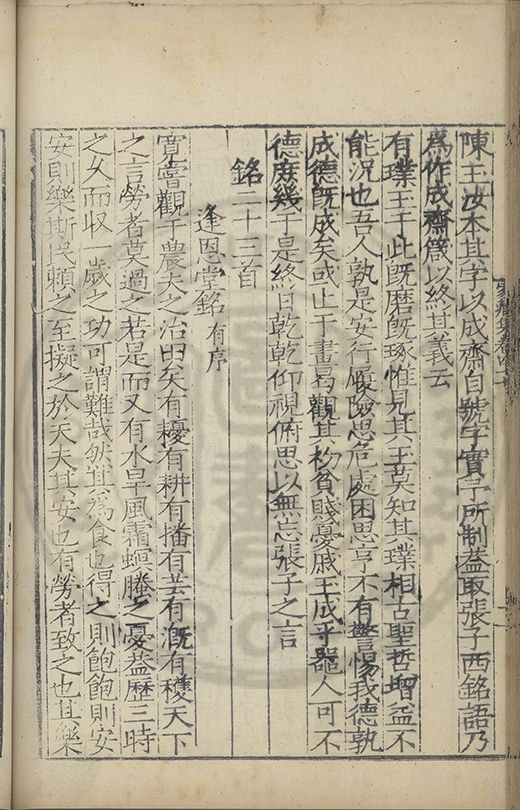 陳玉汝本其字以成齋自號字實予所制葢取張子西銘語乃
爲作成齋箴以終其義云
有璞玉于此旣磨旣琢惟見其玉莫知其璞相古聖哲增益不
能況也吾人孰是安行履險思危處困思亨不有警惕我德孰
成德旣成矣或止于畫曷觀其初貧賤憂戚玉成乎器人可不
德庶幾于是終日乾乾仰視俯思以無忘張子之言
銘二十三首
逢恩堂銘 有序
寛嘗觀于農夫之治田矣有耰有耕有播有芸有漑有穫天下
之言勞者莫過之若是而又有水旱風霜螟螣之憂葢歷三時
之久而収一歲之功可謂難哉然其爲食也得之則飽飽則安
安則樂斯民賴之至擬之於天夫其安也有勞者致之也其樂
家藏集卷四十